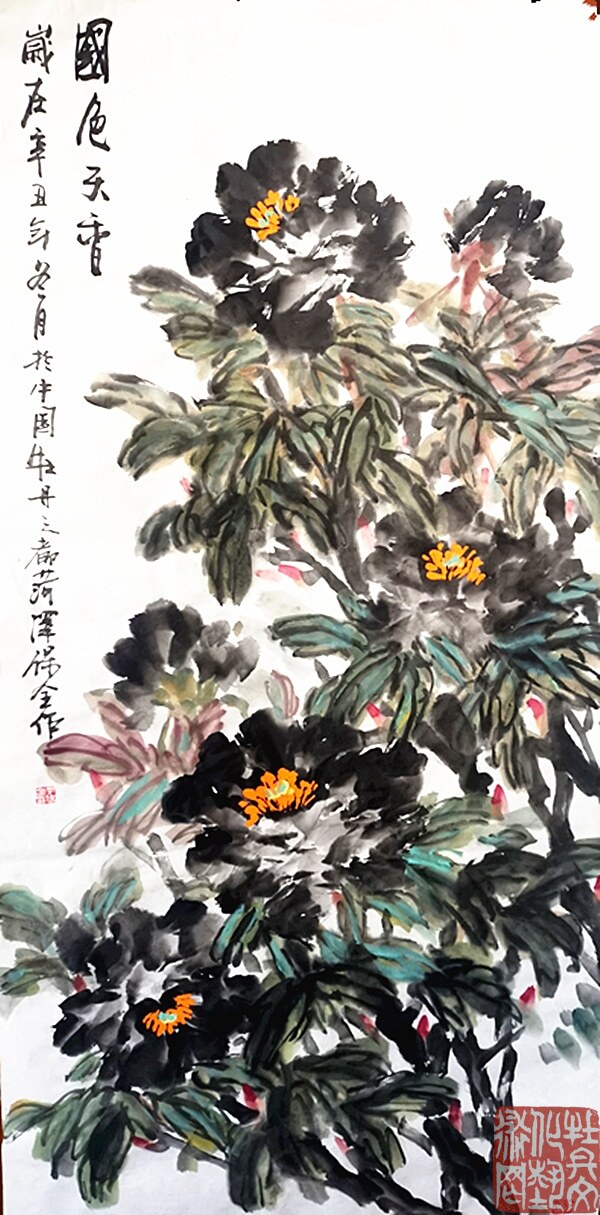 國色天香
歲在辛丑年冬月於中國牡丹之都菏澤保全作
牡丹文化藝術網